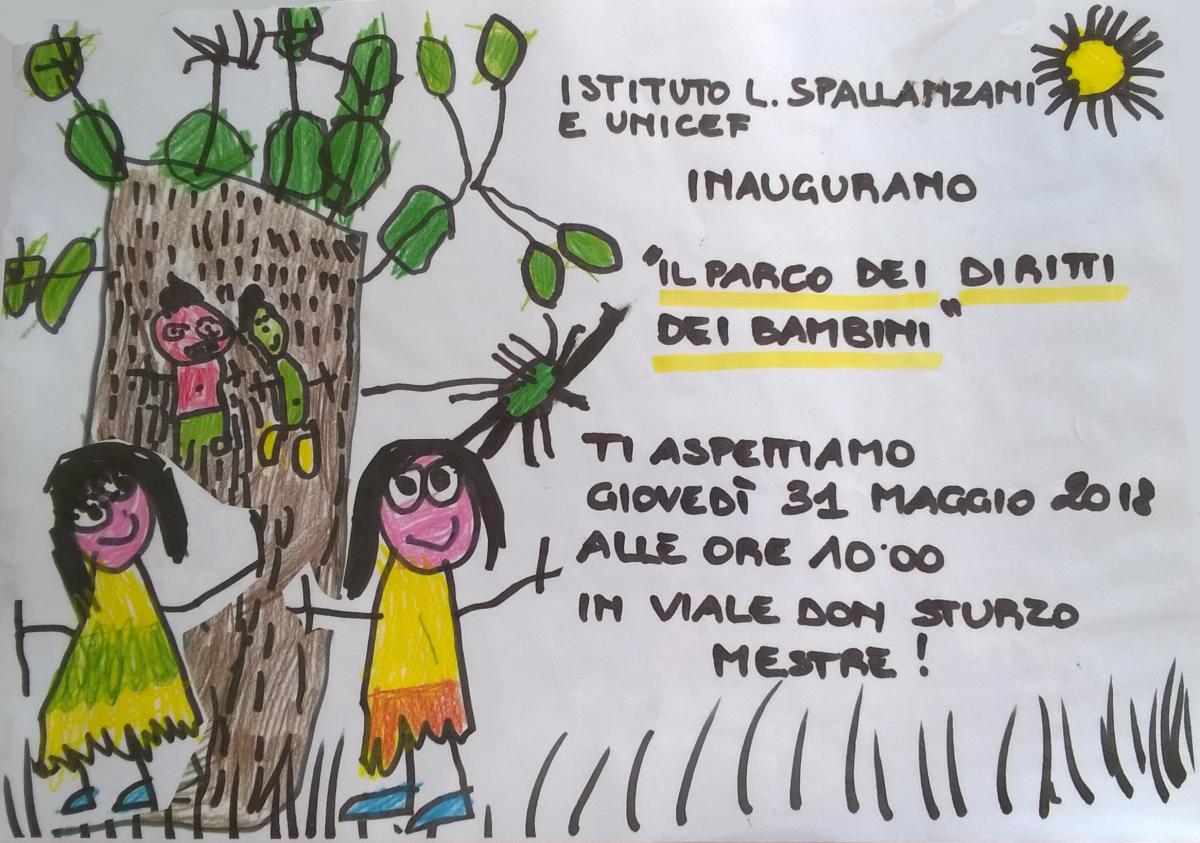 ISTITUTO L. SPALLANZANI
E UNICEF
INAUGURANO
"IL PARCO DEI DIRITTI
DEI BAMBINI"
TI ASPETTIAMO
GIOVEDÌ 31 MAGGIO 2018
ALLE ORE 10·00
IN VIALE DON STURZO
MESTRE!